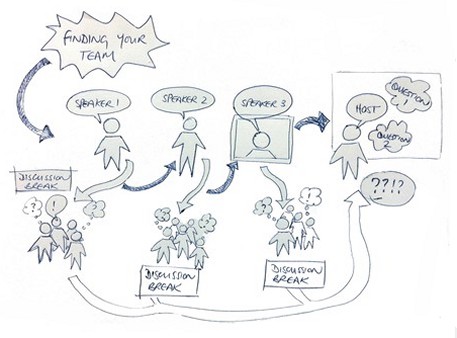 FINDING YOUR
TEAM
SPEAKER 1
SPEAKER 2
SPEAKER 3
HOST
QUESTION
1
QUESTION
2
DISCUSSION
BREAK
?
!
??!?
DISCUSSION
BREAK
DISCUSSION
BREAK